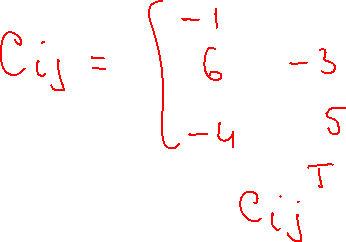 -1
Cij = [ 6 -3
-4 5
CijT